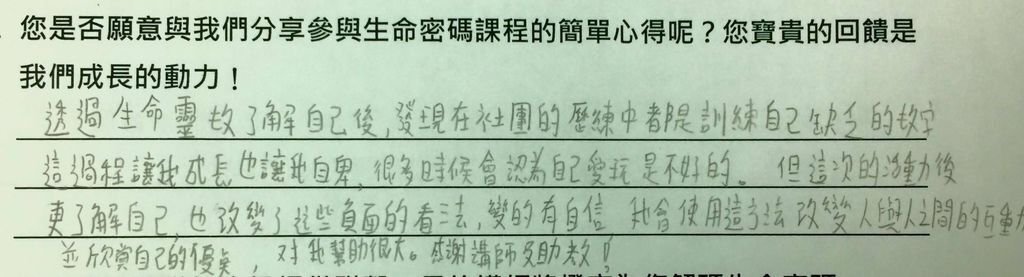 您是否願意與我們分享參與生命密碼課程的簡單心得呢？您寶貴的回饋是
我們成長的動力！
透過生命靈數了解自己後,發現在社團的歷練中都是訓練自己缺乏的数字
這過程讓我成長也讓我自卑,很多時候會認為自己愛玩是不好的。但這次的活動後
更了解自己,也改變了這些負面的看法,變的有自信,我會使用這方法改變人與人之間的互動
並欣賞自己的優点,对我幫助很大。感謝講師及助教!